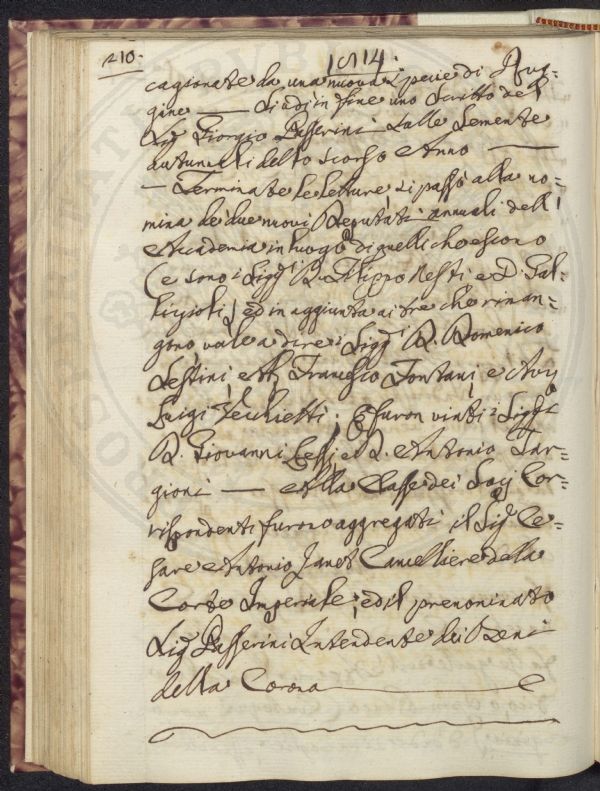 210.
1514.
cagionate da una nuova specie di Rug=
gine —— Si udì in fine uno Scritto del
Sig. Giorgio Passerini sulle Semente
autunnali dello scorso Anno ——
— Terminate le letture si passò alla no=
mina de due nuovi Deputati annuali dell'
Accademia in luogo di quelli che escono
(e sono i Sigg. D. Filippo Nesti e D. Gal=
lizioli) ed in aggiunta ai tre che riman=
gono vale a dire i Sigg. D. Domenico
Sestini Ab. Francesco Fontani, e Avv.
Luigi Tecchietti; E furon vinti i Sigg.
D. Giovanni Lessi e D. Antonio Tar=
gioni —— Alla Classe dei Socj Cor=
rispondenti furono aggregati il Sig. Ce=
sare Antonio Janet Cancelliere della
Corte Imperiale, ed il prenominato
Sig. Passerini Intendente dei Beni
della Corona ——